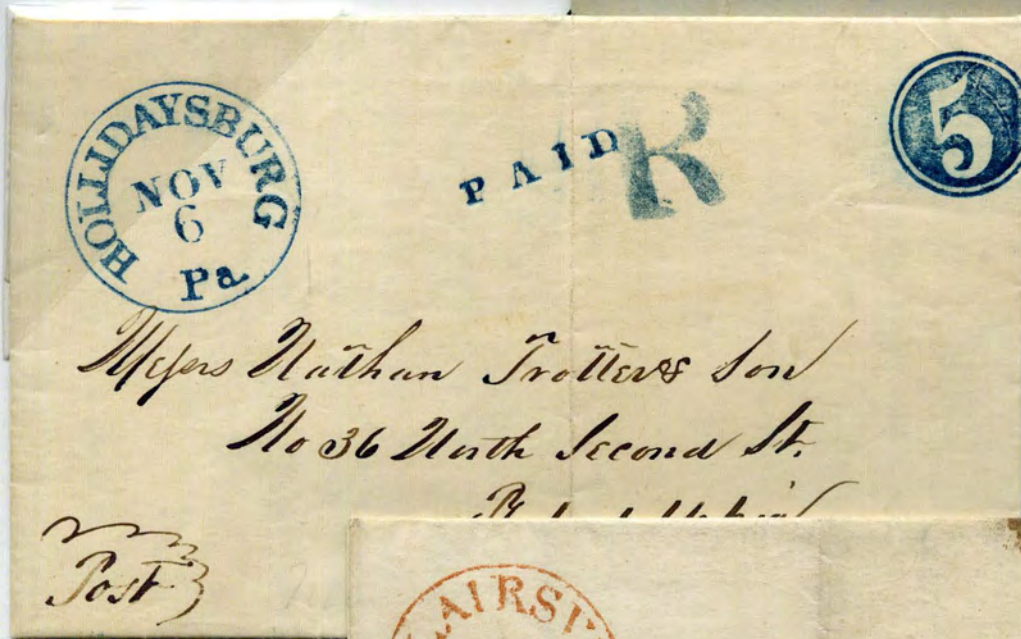 HOLLIDAYSBURG
NOV
6
Pa.
PAID
R
5
Messrs Nathan Trotter & Son
No 36 North Second St.
Post